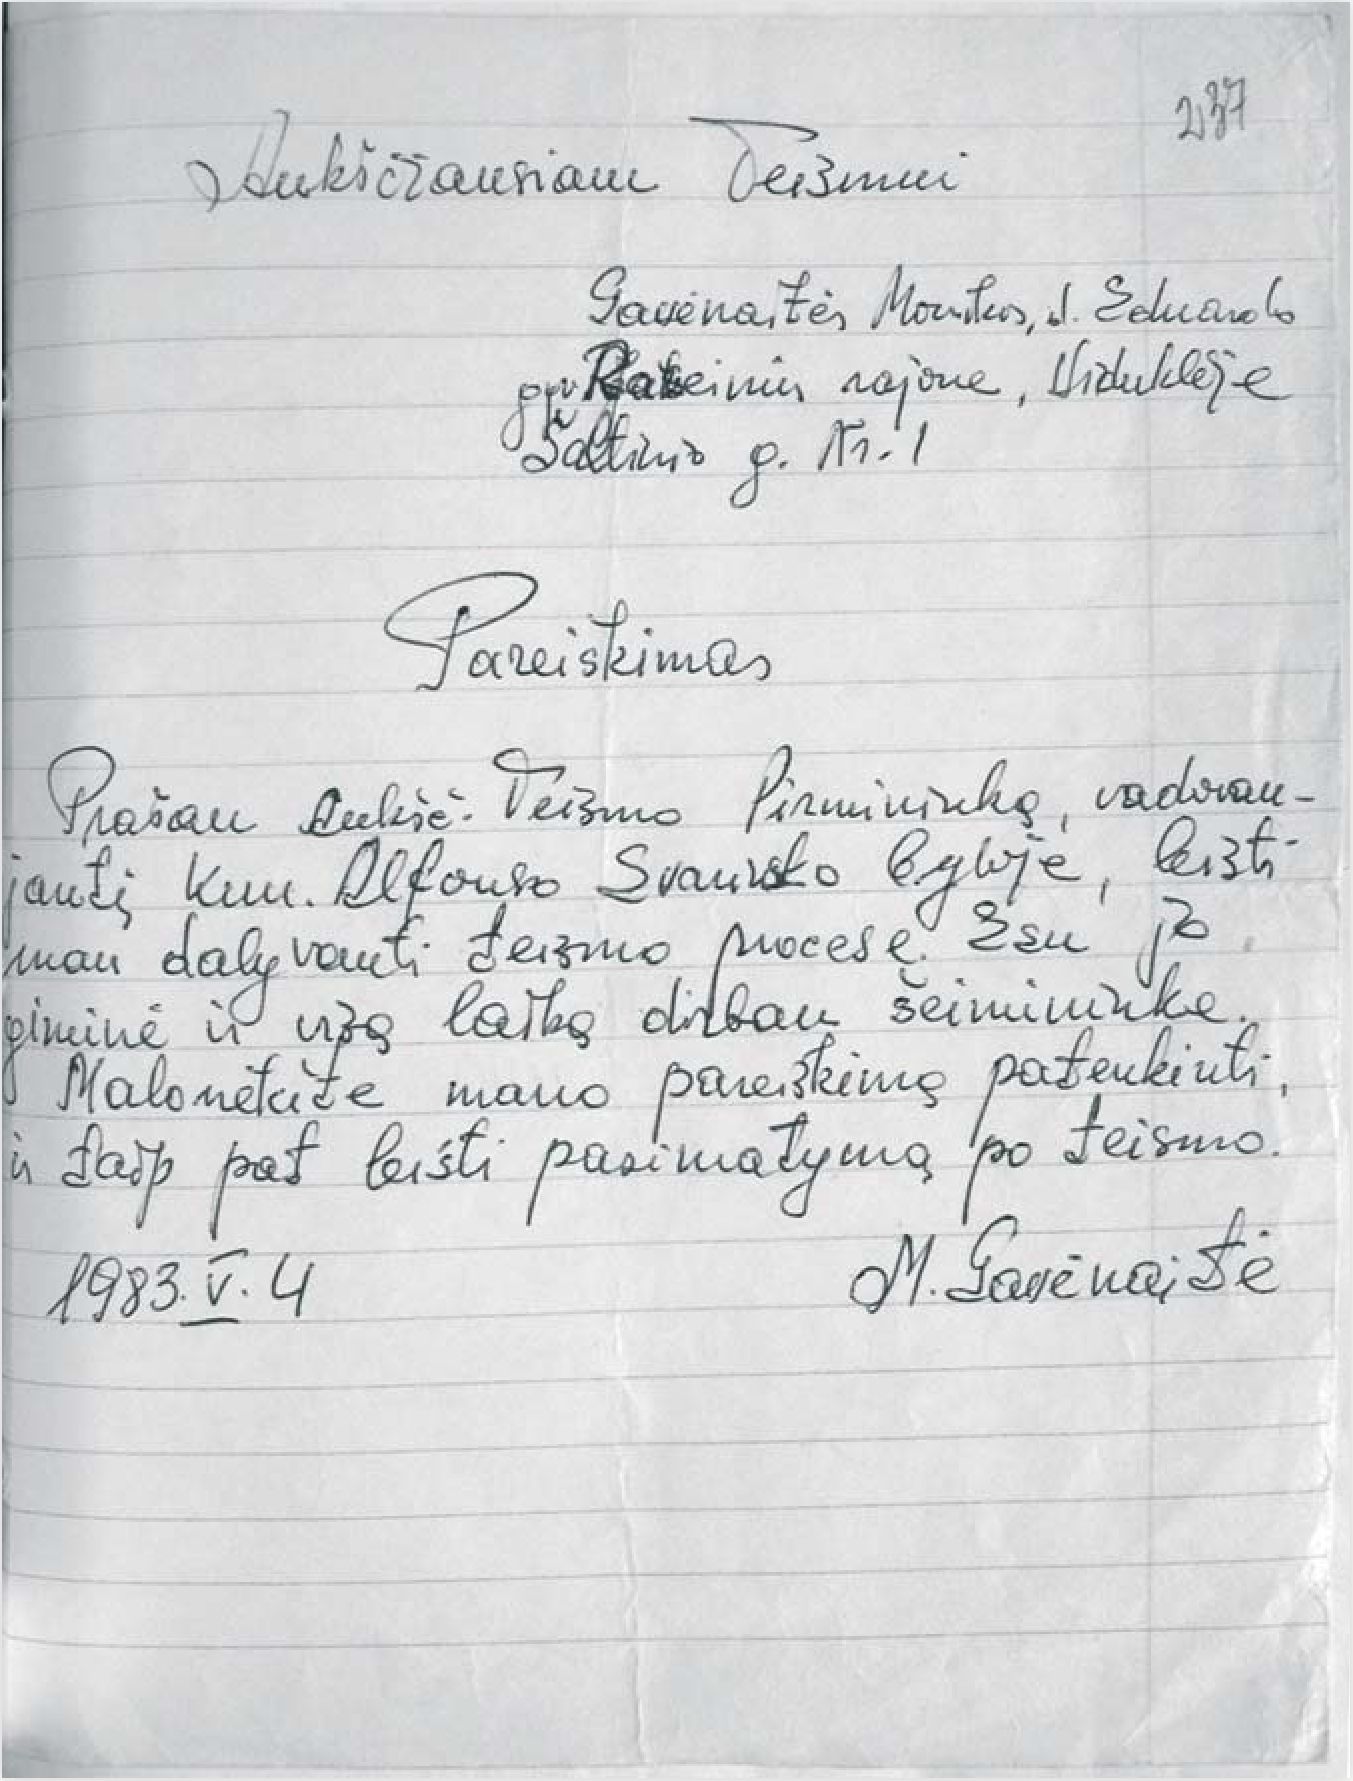 237
Aukščiausiam Teismui
Gavėnaitės Monikos, d. Eduardo
gyv Raseinių rajone, Viduklėje
Šaltinio g. Nr. 1
Pareiškimas
Prašau Aukšč. Teismo Pirmininką, vadovau-
jantį kun. Alfonso Svarinsko byloje, leisti
man dalyvauti teismo procese. Esu jo
giminė ir visą laiką dirbau šeimininke.
Malonėkite mano pareiškimą patenkinti,
ir taip pat leisti pasimatymą po teismo.
1983.V.4 M. Gavėnaitė